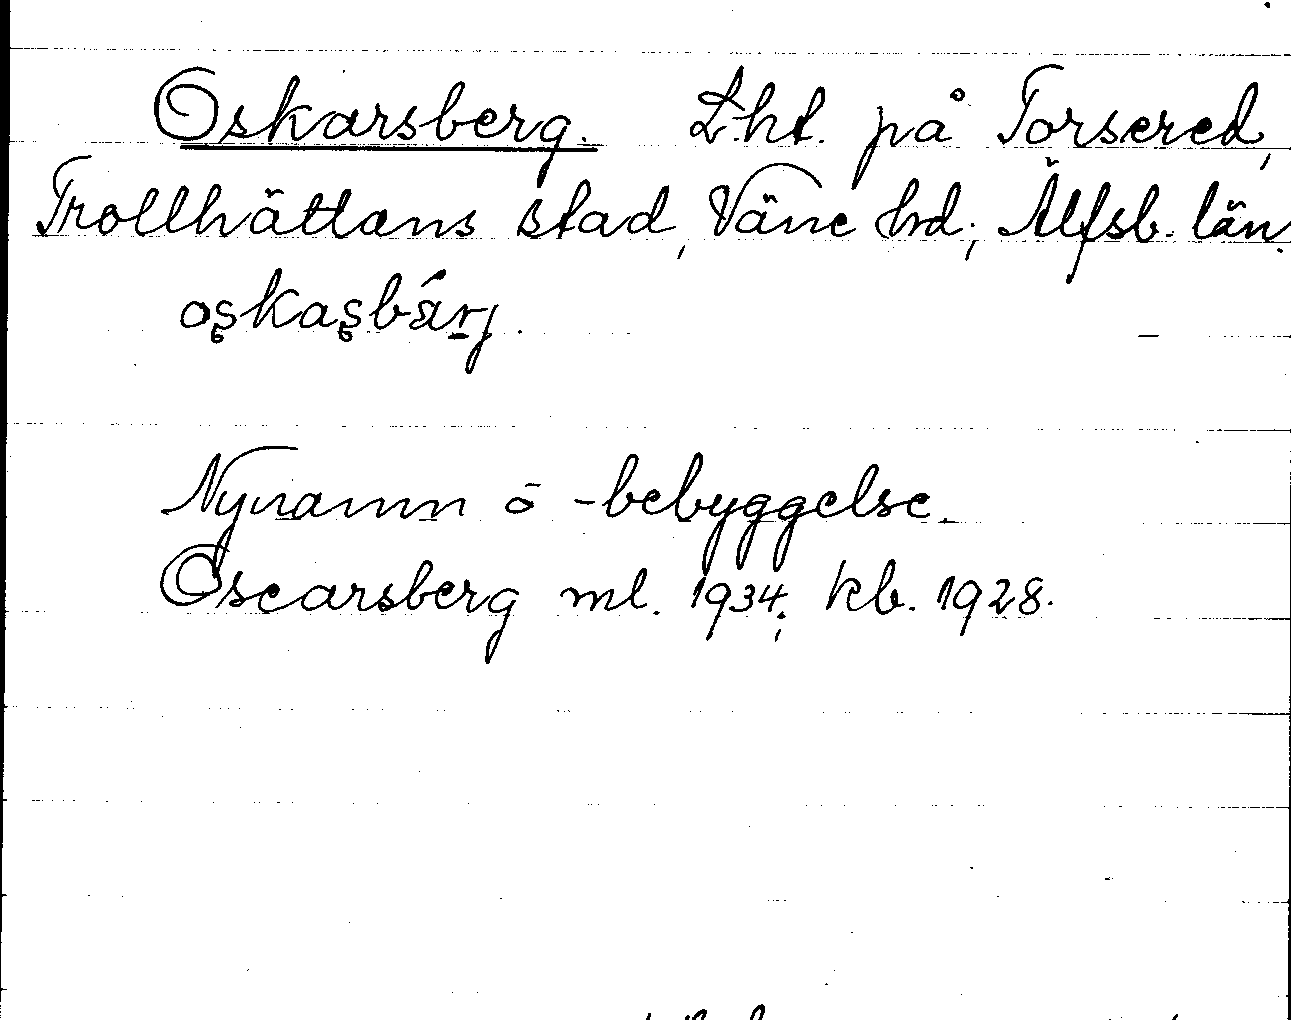 Oskarsberg. Lht. på Torsered,
Trollhättans stad, Väne hd; Älfsb. län.
Nynamn o -bebyggelse.
Oscarsberg ml. 1934; kb. 1928.